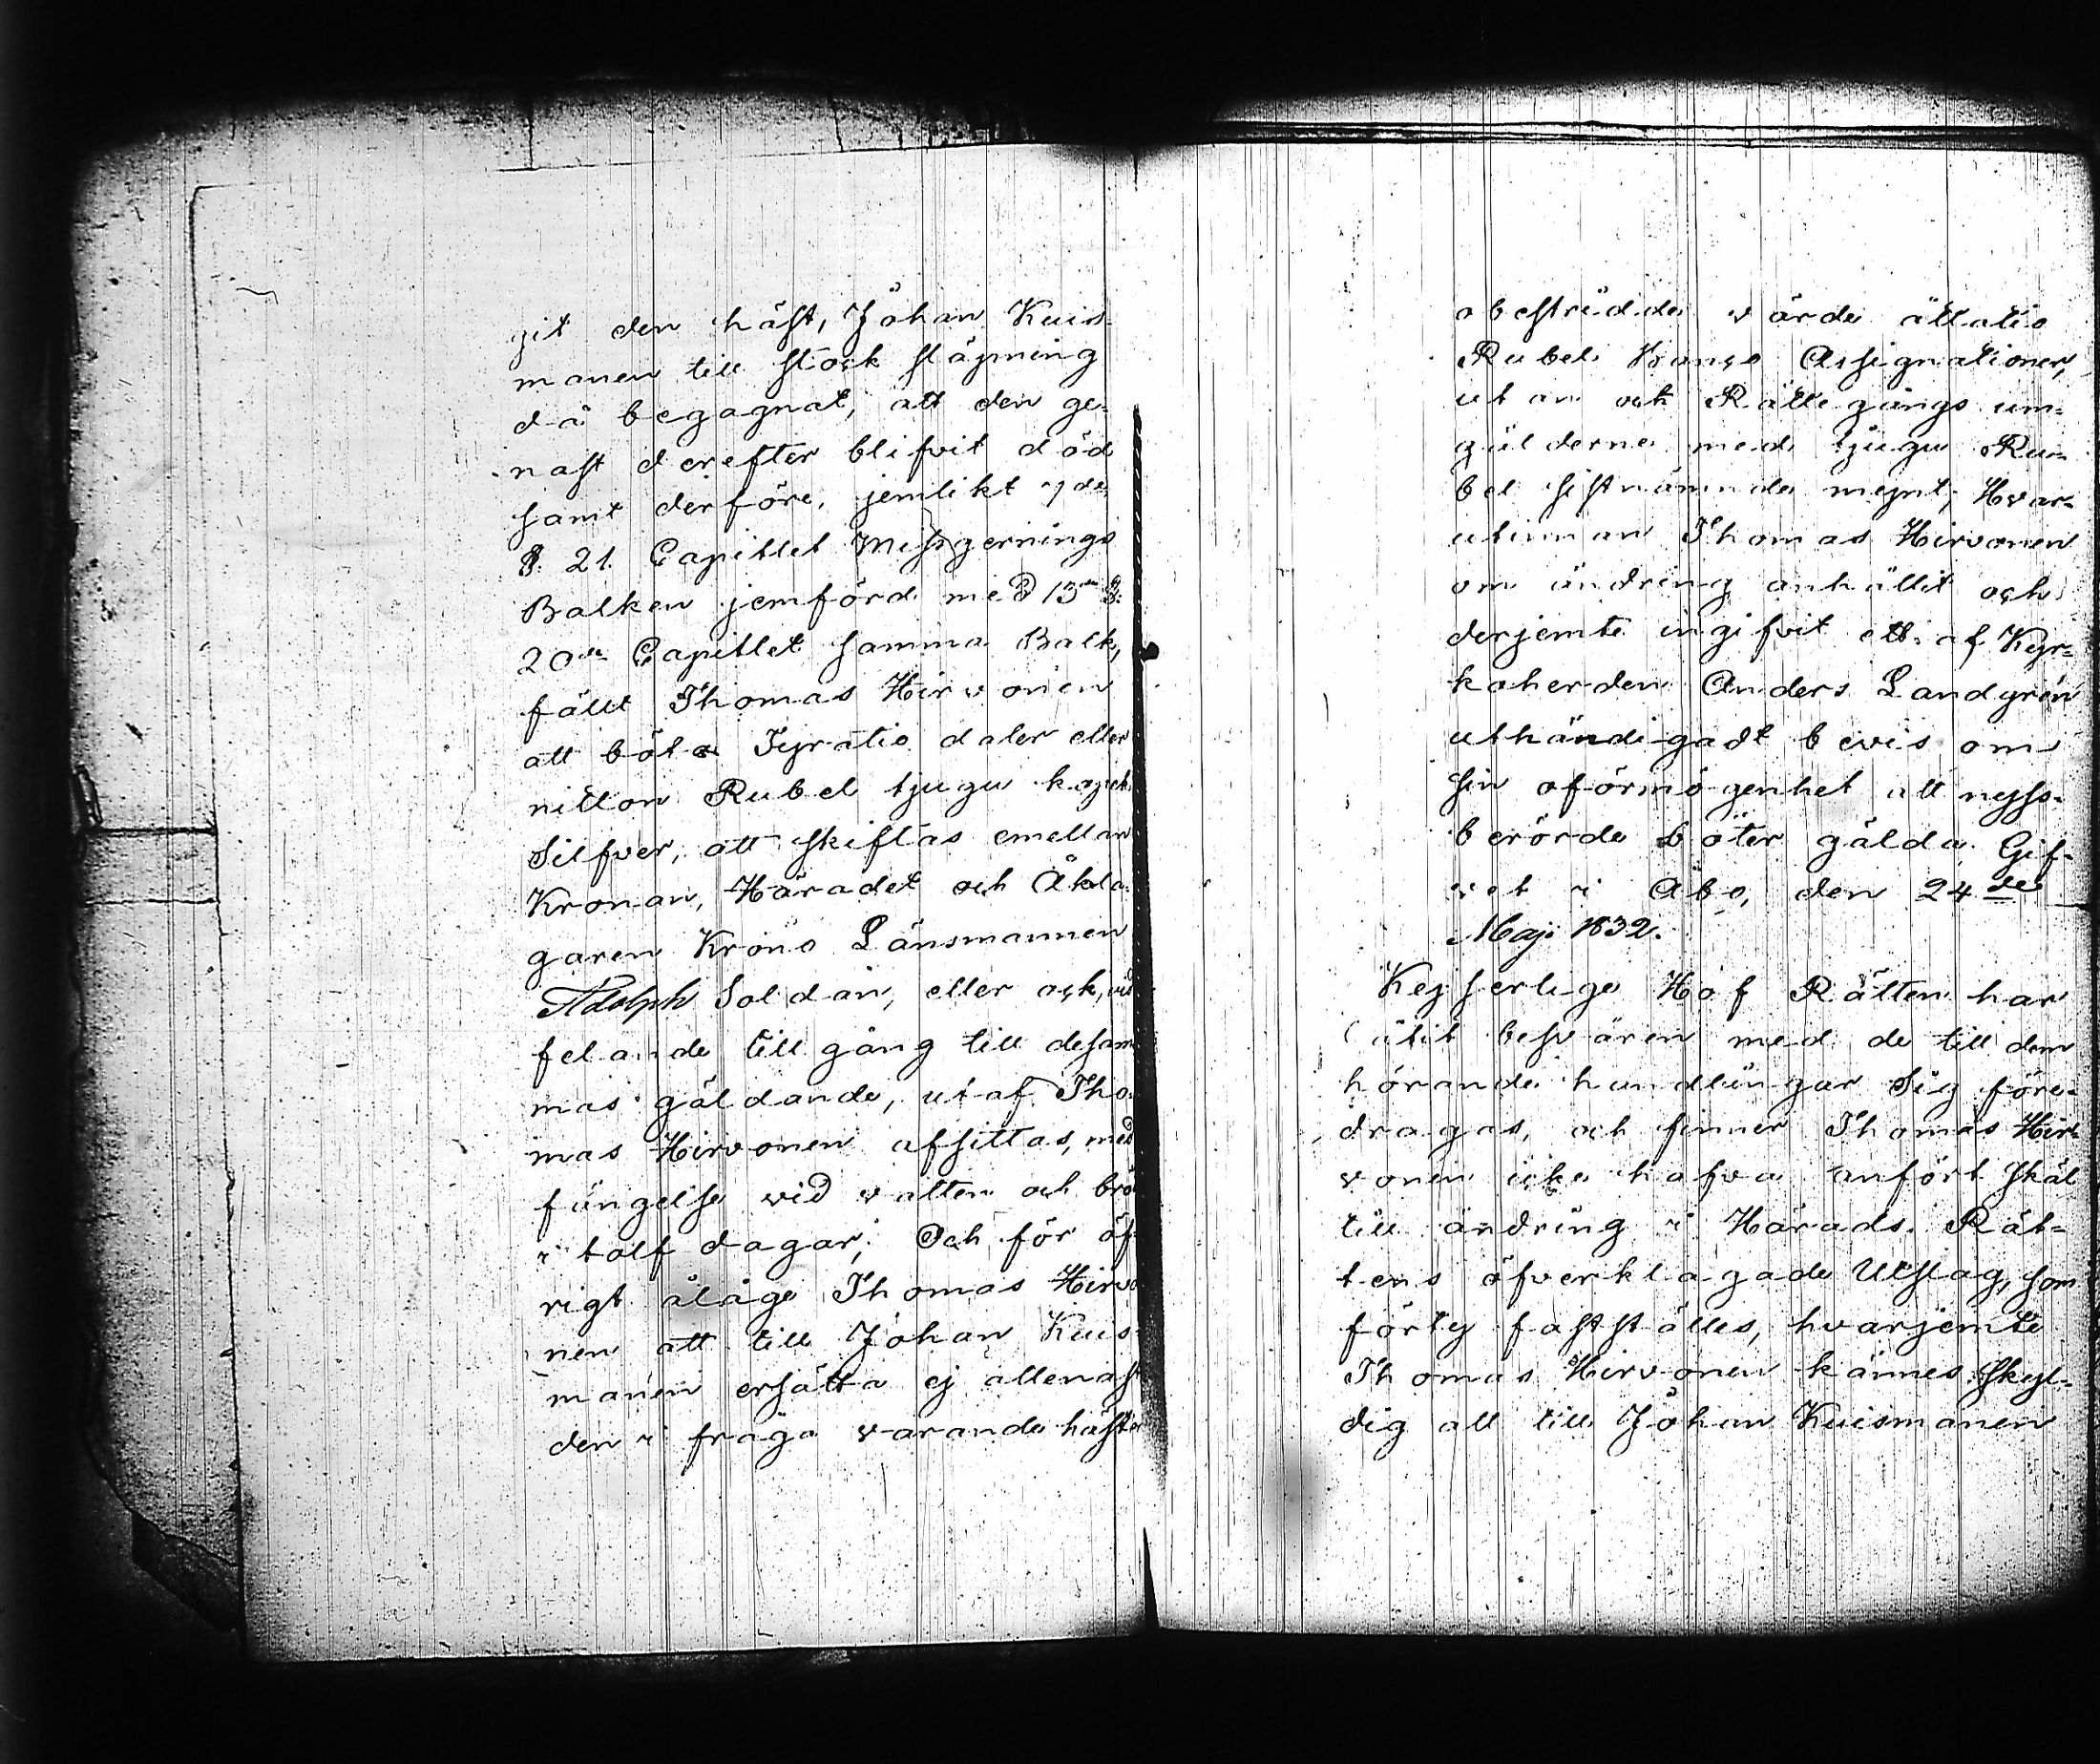 git den häst, Johan Kuis-
manen till stock släpning
då begagnat, att den ge-
nast derefter blifvit död
samt derföre, jemlikt 7de
§. 21. Capitlet Missgernings
Balken jemförd med 13de §:
20de Capitlet samma Balk,
fällt Thomas Hirvonen
att böta Fyratio daler eller
nitton Rubel tjugu kopek
Silfver, att skiftas emellan
Kronan, Häradet och Åkla-
garen Krono Länsmannen
Adolph Soldan, eller ock, vid
felande tillgång till desam-
mas gäldande, utaf Tho-
mas Hirvonen afsittas, med
fängelse vid vatten och bröd
i tolf dagar; Och för öf-
rigt ålagt Thomas Hirvo
nen att till Johan Kuis-
manen ersätta ej allenast
den i fråga varande hästen
obestridda värde åttatio
Rubel Banco Assignationer,
utan ock Rättegångs um-
gälderne med tjugu Ru-
bel sistnämnda mynt; Hvar-
utinnan Thomas Hirvonen
om ändring anhållit och
derjemte ingifvit ett af Kyr-
koherden Anders Landgrén
uthändigadt bevis om
sin oförmögenhet att nyss-
berörde böter gälda. Gif-
vet i Åbo, den 24de
Maji 1832.
Kejserlige Hof Rätten har
låtit besvären med de till dem
hörande handlingar Sig före-
dragas, och finner Thomas Hir-
vonen icke hafva anfört skäl
till ändring i Härads Rät-
tens öfverklagade Utslag, som
förty fastställes, hvarjemte
Thomas Hirvonen kännes skyl-
dig att till Johan Kuismanen